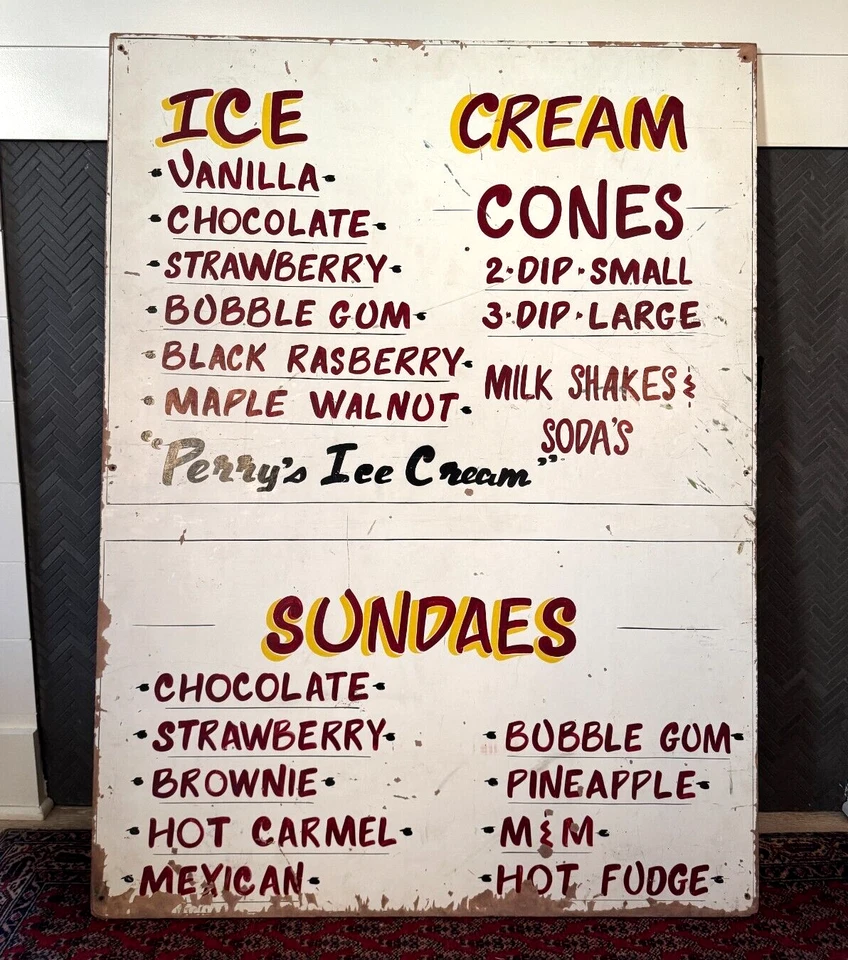 ICE CREAM
VANILLA
CHOCOLATE
STRAWBERRY
BUBBLE GUM
BLACK RASBERRY
MAPLE WALNUT
CONES
2·DIP·SMALL
3·DIP·LARGE
MILK SHAKES &
SODA'S
"Perry's Ice Cream"
SUNDAES
CHOCOLATE
STRAWBERRY
BROWNIE
HOT CARMEL
MEXICAN
BUBBLE GUM
PINEAPPLE
M&M
HOT FUDGE